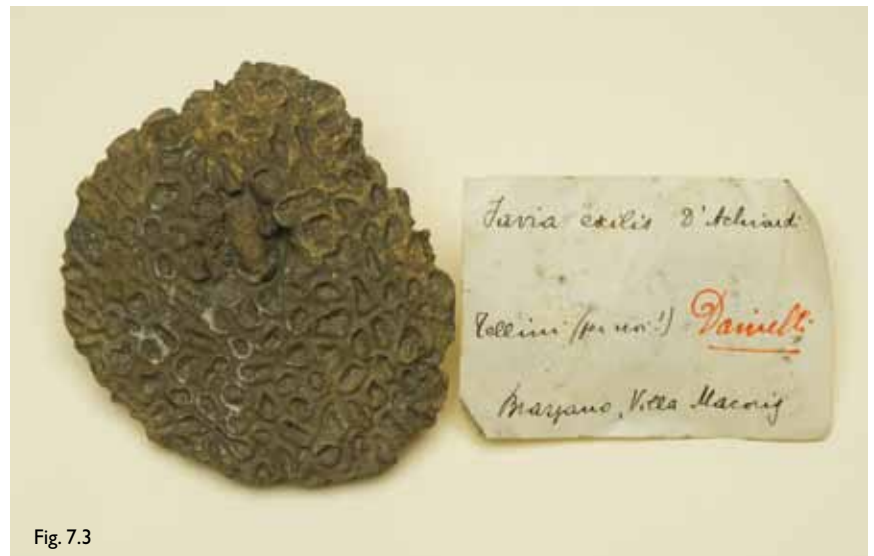 Favia exilis D'Achiardi
Tellini (per noi!) Dainelli
Brazzano, Villa Macorig
Fig. 7.3